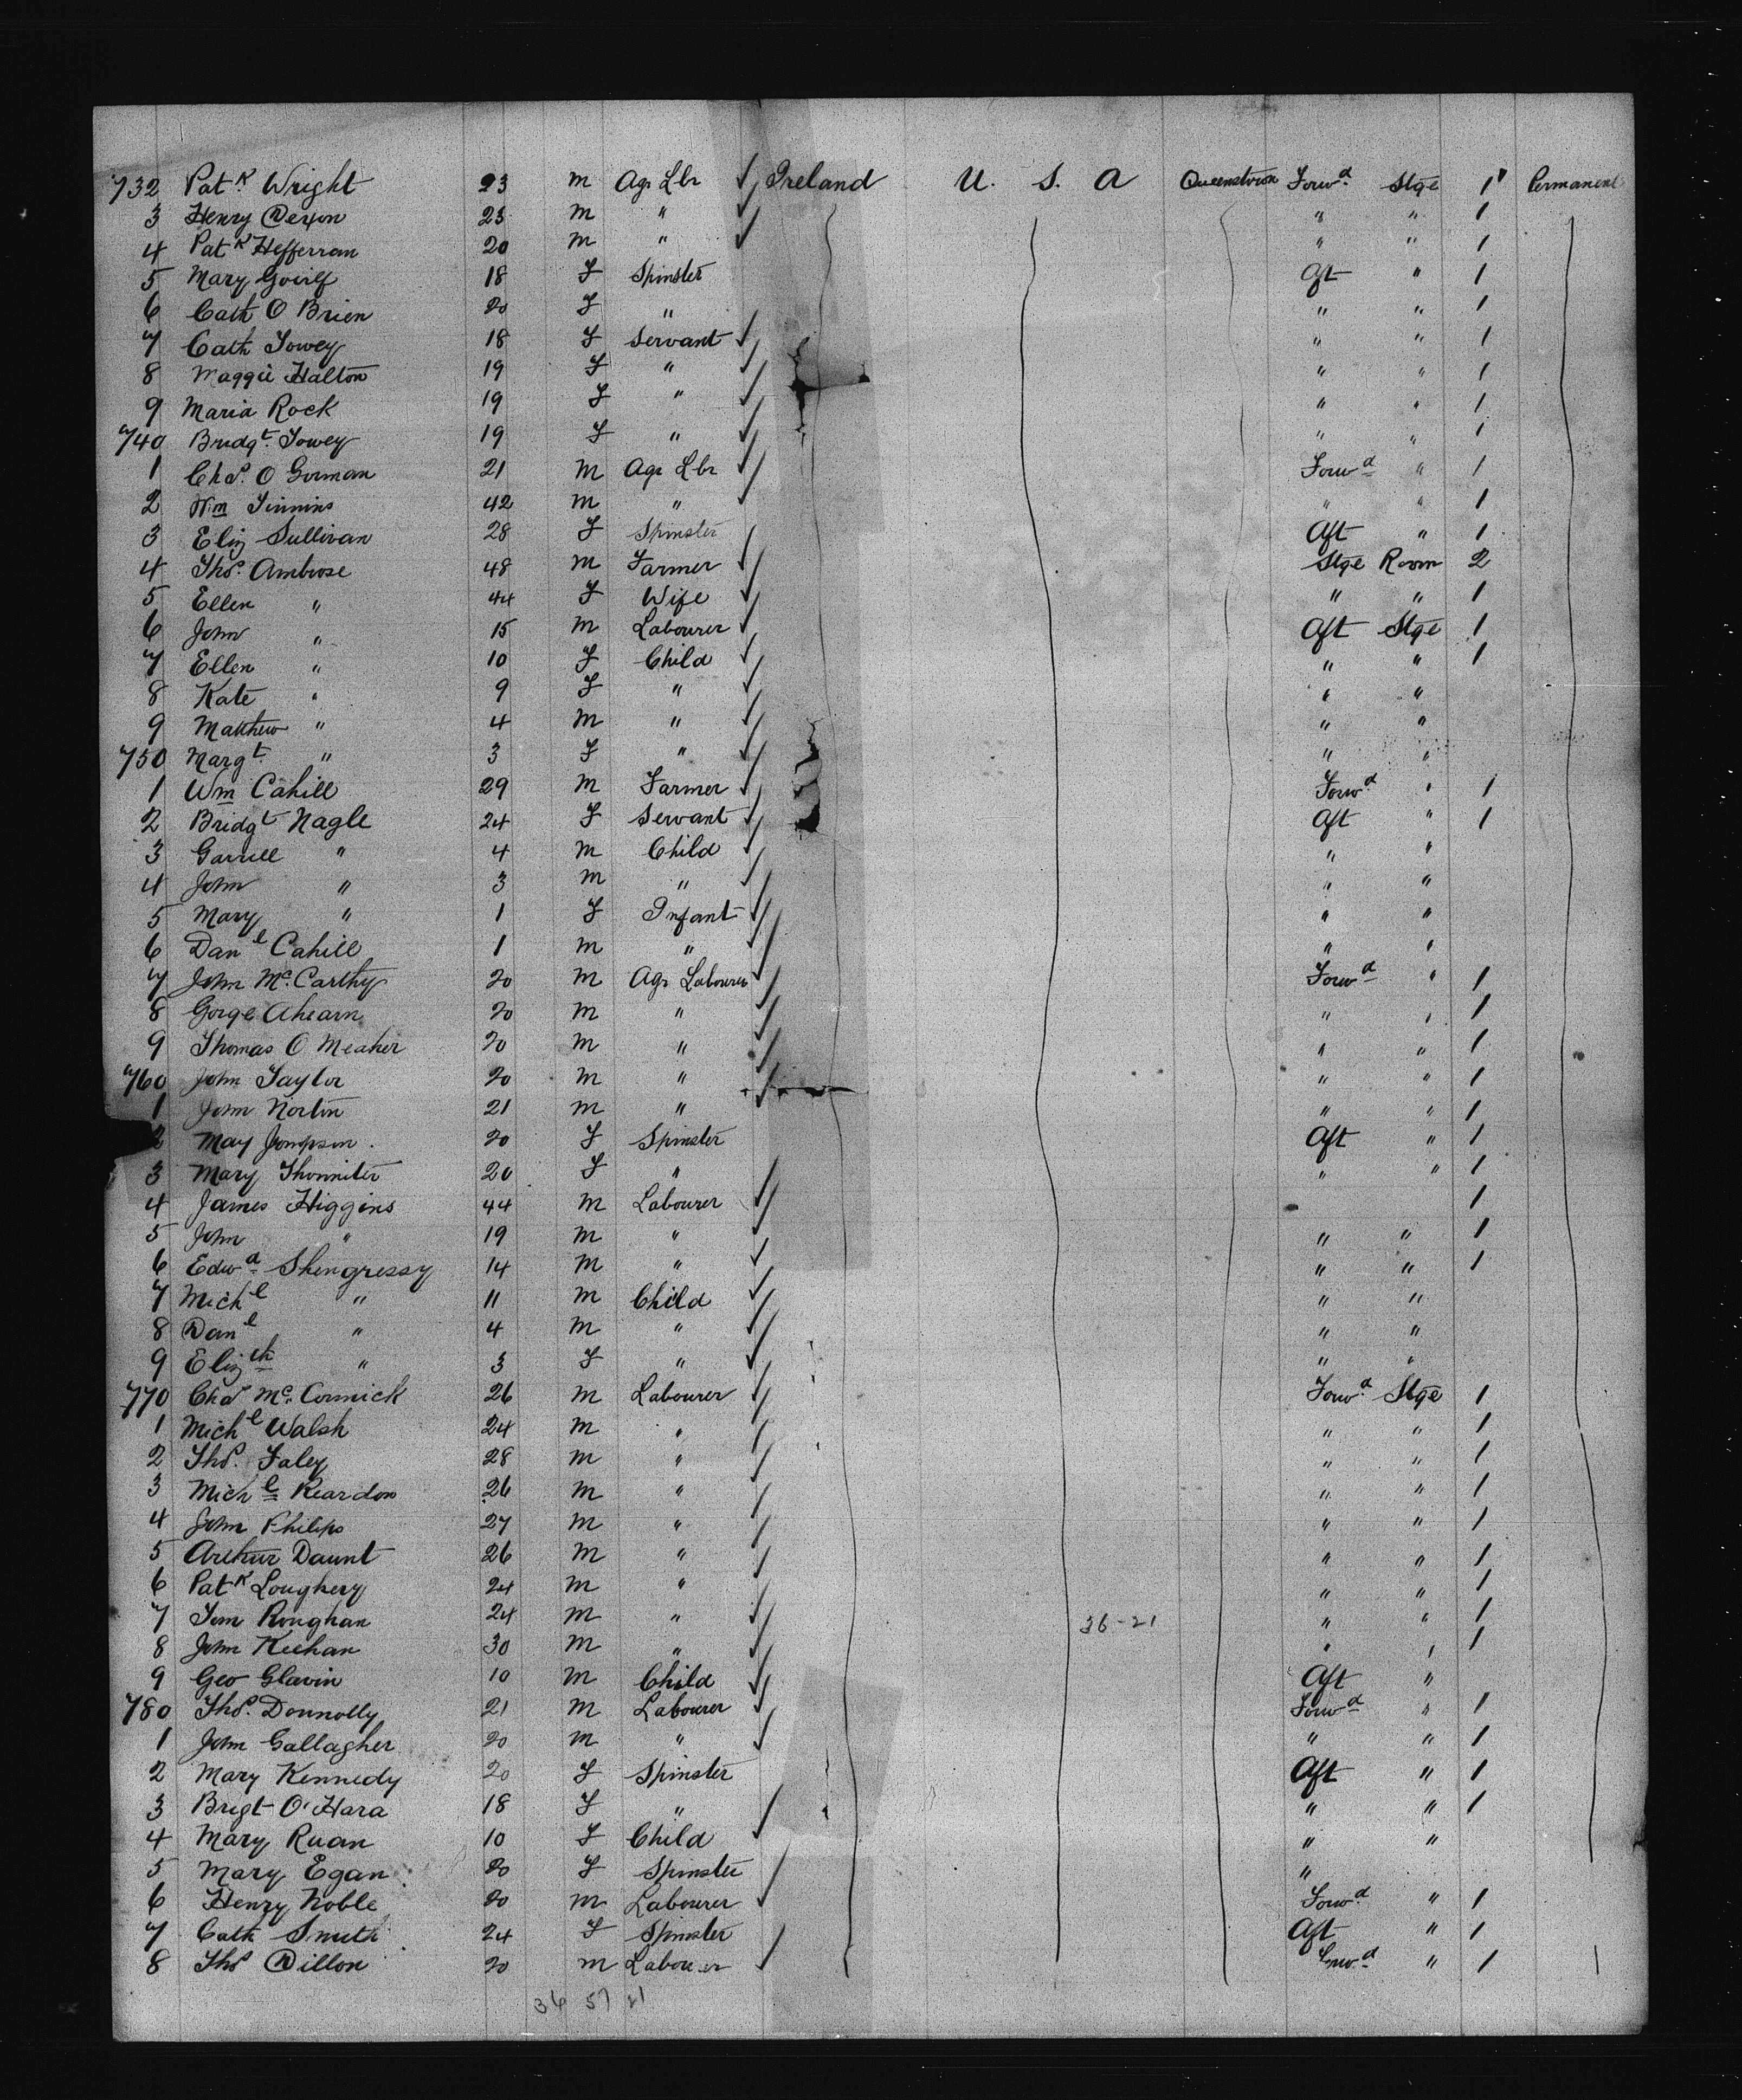 732 Patk Wright 23 m Agr Lbr Ireland U. S. A Queenstown Forwd Stge 1 Permanent
3 Henry Dexon 23 m " " " 1
4 Patk Hefferran 20 m " " " 1
5 Mary 18 F Spinster Aft " 1
6 Cath O Brien 20 F " " " 1
7 Cath Towey 18 F Servant " " 1
8 Maggie Halton 19 F " " " 1
9 Maria Rock 19 F " " " 1
740 Bridgt Towey 19 F " " " 1
1 Chs. O Gorman 21 m Agr Lbr Forwd " 1
2 Wm 42 m " " " 1
3 Eliz Sullivan 28 F Spinster Aft " 1
4 Thos. Ambrose 48 m Farmer Stge Room 2
5 Ellen " 44 F Wife " " 1
6 John " 15 m Labourer Aft Stge 1
7 Ellen " 10 F Child " " 1
8 Kate " 9 F " " "
9 Matthew " 4 m " " "
750 Margt " 3 F " " "
1 Wm Cahill 29 m Farmer Forwd " 1
2 Bridgt Nagle 24 F Servant Aft " 1
3 Garrell " 4 m Child " "
4 John " 3 m " " "
5 Mary " 1 F Infant " "
6 Danl Cahill 1 m " " "
7 John McCarthy 20 m Agr Labourer Forwd " 1
8 Gorge Ahearn 20 m " " " 1
9 Thomas O Meaher 20 m " " " 1
760 John Taylor 20 m " " " 1
1 John Norton 21 m " " " 1
2 May Jompson 20 F Spinster Aft " 1
3 Mary 20 F " " " 1
4 James Higgins 44 m Labourer 1
5 John " 19 m " " " 1
6 Edwd Shengressy 14 m " " " 1
7 Michl " 11 m Child " "
8 Danl " 4 m " " "
9 Elizth " 3 F " " "
770 Chas McCormick 26 m Labourer Forwd Stge 1
1 Michl Walsh 24 m " " " 1
2 Thos. Faley 28 m " " " 1
3 Michl Reardon 26 m " " " 1
4 John Philips 27 m " " " 1
5 Arthur Daunt 26 m " " " 1
6 Patk Loughery 24 m " " " 1
7 Tom Roughan 24 m " 36-21 " " 1
8 John Keehan 30 m " " " 1
9 Geo Glavin 10 m Child Aft "
780 Thos. Donnolly 21 m Labourer Forwd " 1
1 John Gallagher 20 m " " " 1
2 Mary Kennedy 20 F Spinster Aft " 1
3 Brigt O'Hara 18 F " " " 1
4 Mary Ruan 10 F Child " "
5 Mary Egan 20 F Spinster "
6 Henry Noble 20 m Labourer Forwd " 1
7 Cath Smith 24 F Spinster Aft " 1
8 Thos Dillon 20 m Labourer Forwd " 1
36 57 21